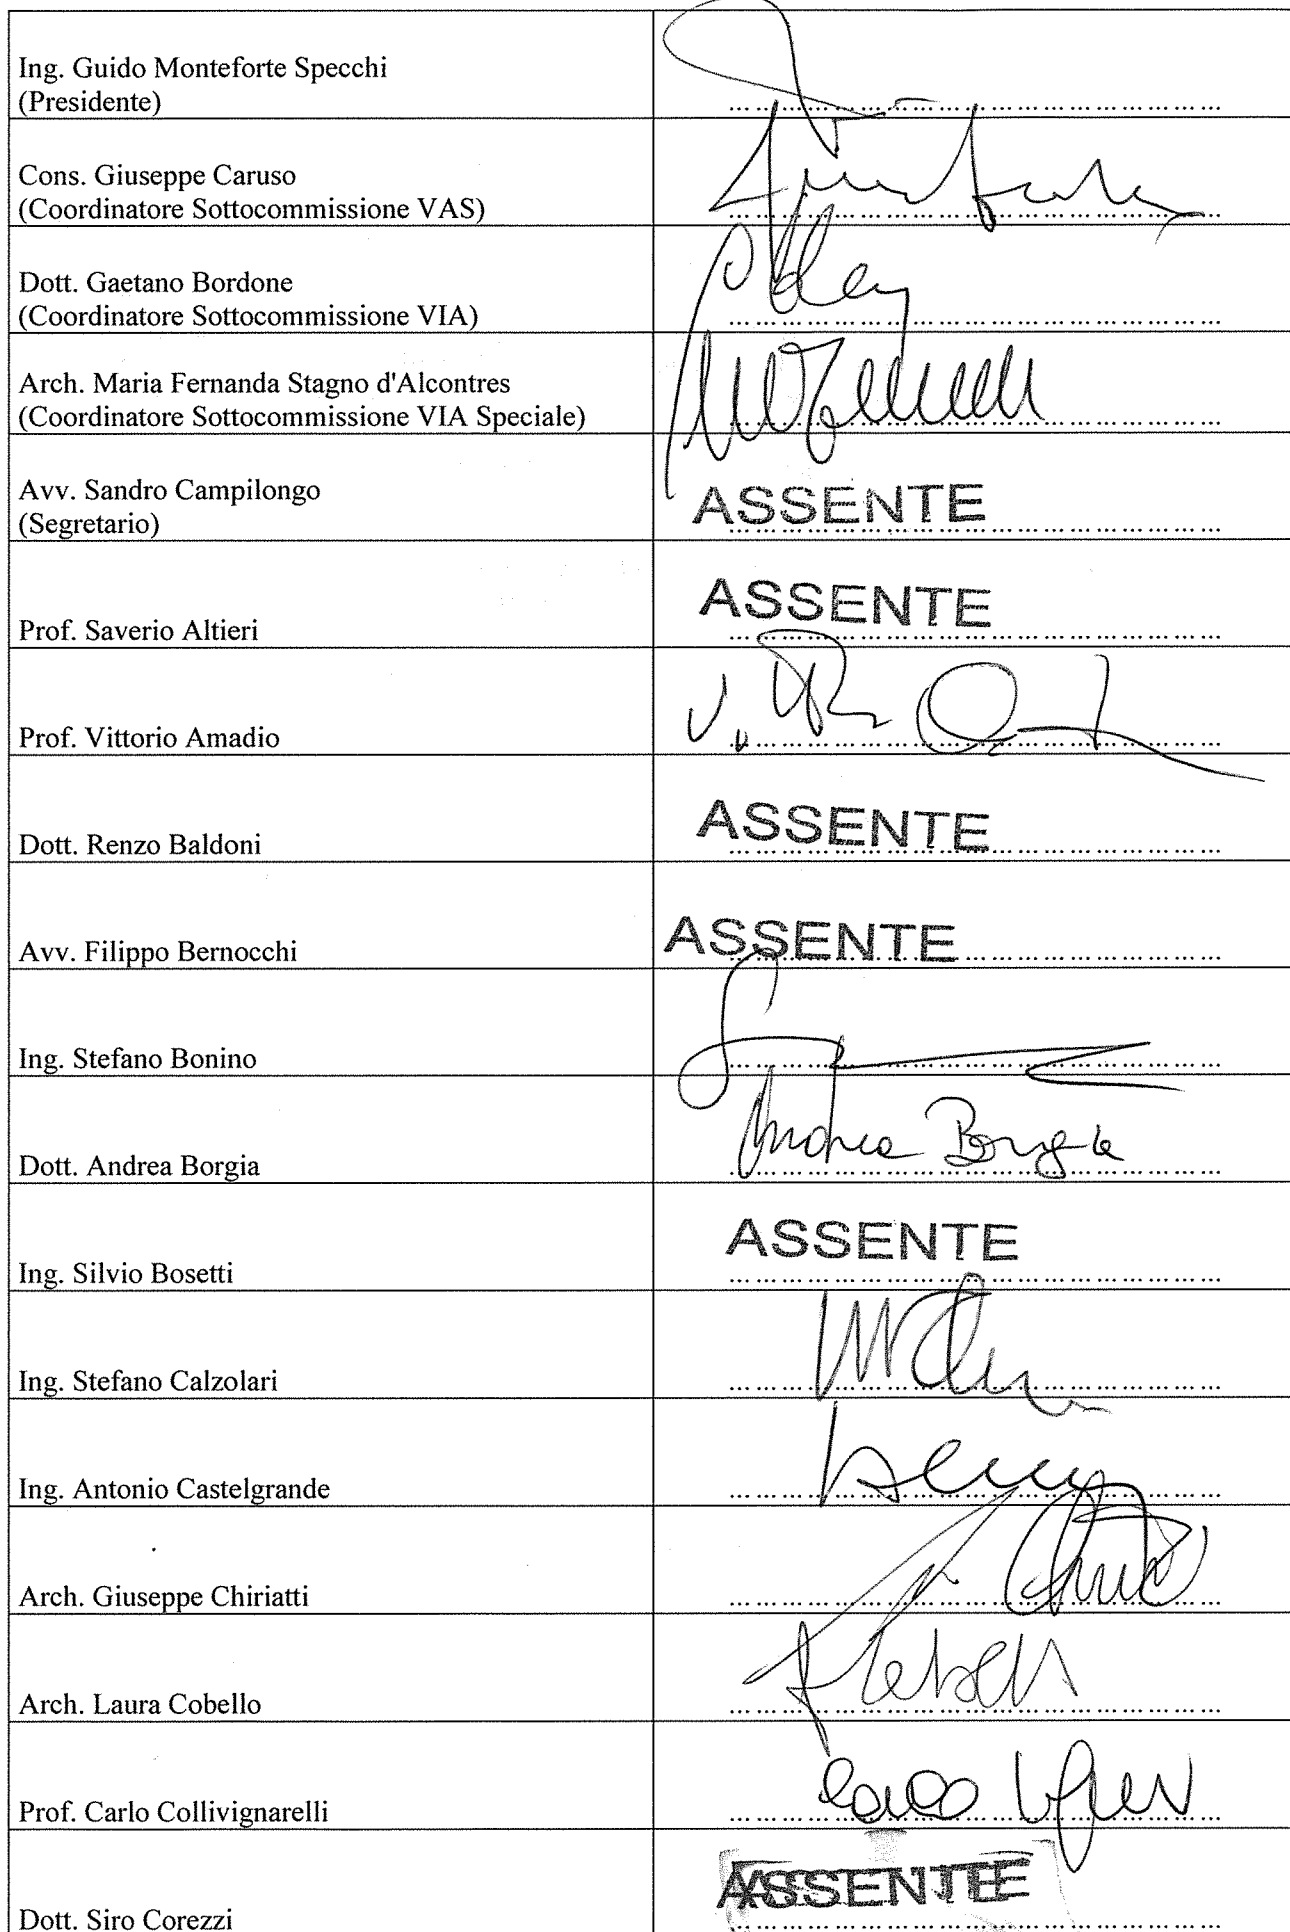 Ing. Guido Monteforte Specchi
(Presidente)
Cons. Giuseppe Caruso
(Coordinatore Sottocommissione VAS)
Dott. Gaetano Bordone
(Coordinatore Sottocommissione VIA)
Arch. Maria Fernanda Stagno d'Alcontres
(Coordinatore Sottocommissione VIA Speciale)
Avv. Sandro Campilongo
(Segretario)
ASSENTE
Prof. Saverio Altieri
ASSENTE
Prof. Vittorio Amadio
Dott. Renzo Baldoni
ASSENTE
Avv. Filippo Bernocchi
ASSENTE
Ing. Stefano Bonino
Dott. Andrea Borgia
Andrea Borgia
Ing. Silvio Bosetti
ASSENTE
Ing. Stefano Calzolari
Ing. Antonio Castelgrande
Arch. Giuseppe Chiriatti
Arch. Laura Cobello
Prof. Carlo Collivignarelli
Dott. Siro Corezzi
ASSENTE